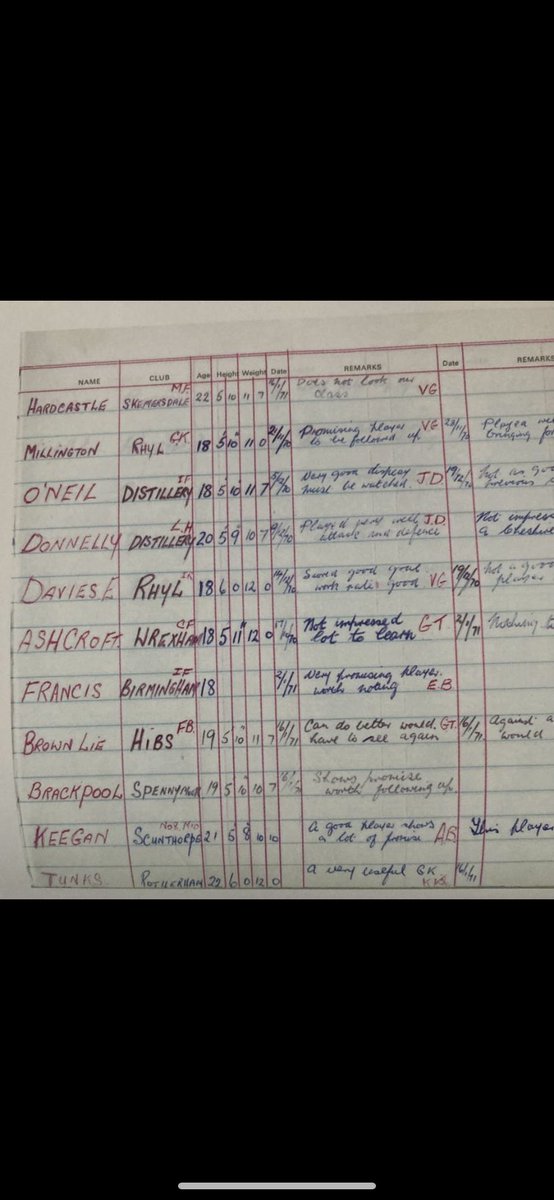 NAME CLUB Age Height Weight Date REMARKS Date REMARKS
HARDCASTLE SKEMERSDALE M.F. 22 5 10 11 7 16/1/71 Does not look our
class VG
MILLINGTON RHYL G.K. 18 5 10 11 0 21/11/70 Promising player VG 28/11/70 Played
to be followed up. bringing
O'NEIL DISTILLERY I.F 18 5 10 11 7 5/12/70 Very good display J.D. 19/12/70 Not as good
must be watched. previous
DONNELLY DISTILLERY L.H 20 5 9 10 7 Played very well J.D. Not
attack and defence a
DAVIES E RHYL 18 6 0 12 0 Scored good goal 19/12/70 Not a good
work rate good VG player
ASHCROFT WREXHAM C.F. 18 5 11 12 0 Not impressed GT 2/1/71 Nothing
lot to learn
FRANCIS BIRMINGHAM I.F 18 2/1/71 Very promising player.
worth noting E.B.
BROWNLIE HIBS F.B. 19 5 10 11 7 16/1/71 Can do better would GT. 16/1/71 Against a
have to see again would
BRACKPOOL SPENNYMOOR 19 5 10 10 7 16/1/71 Shows promise
worth following up.
KEEGAN SCUNTHORPE No8. MID 21 5 8 10 10 A good player shows AB. This player
a lot of promise
TUNKS ROTHERHAM 22 6 0 12 0 A very useful GK 16/1/71